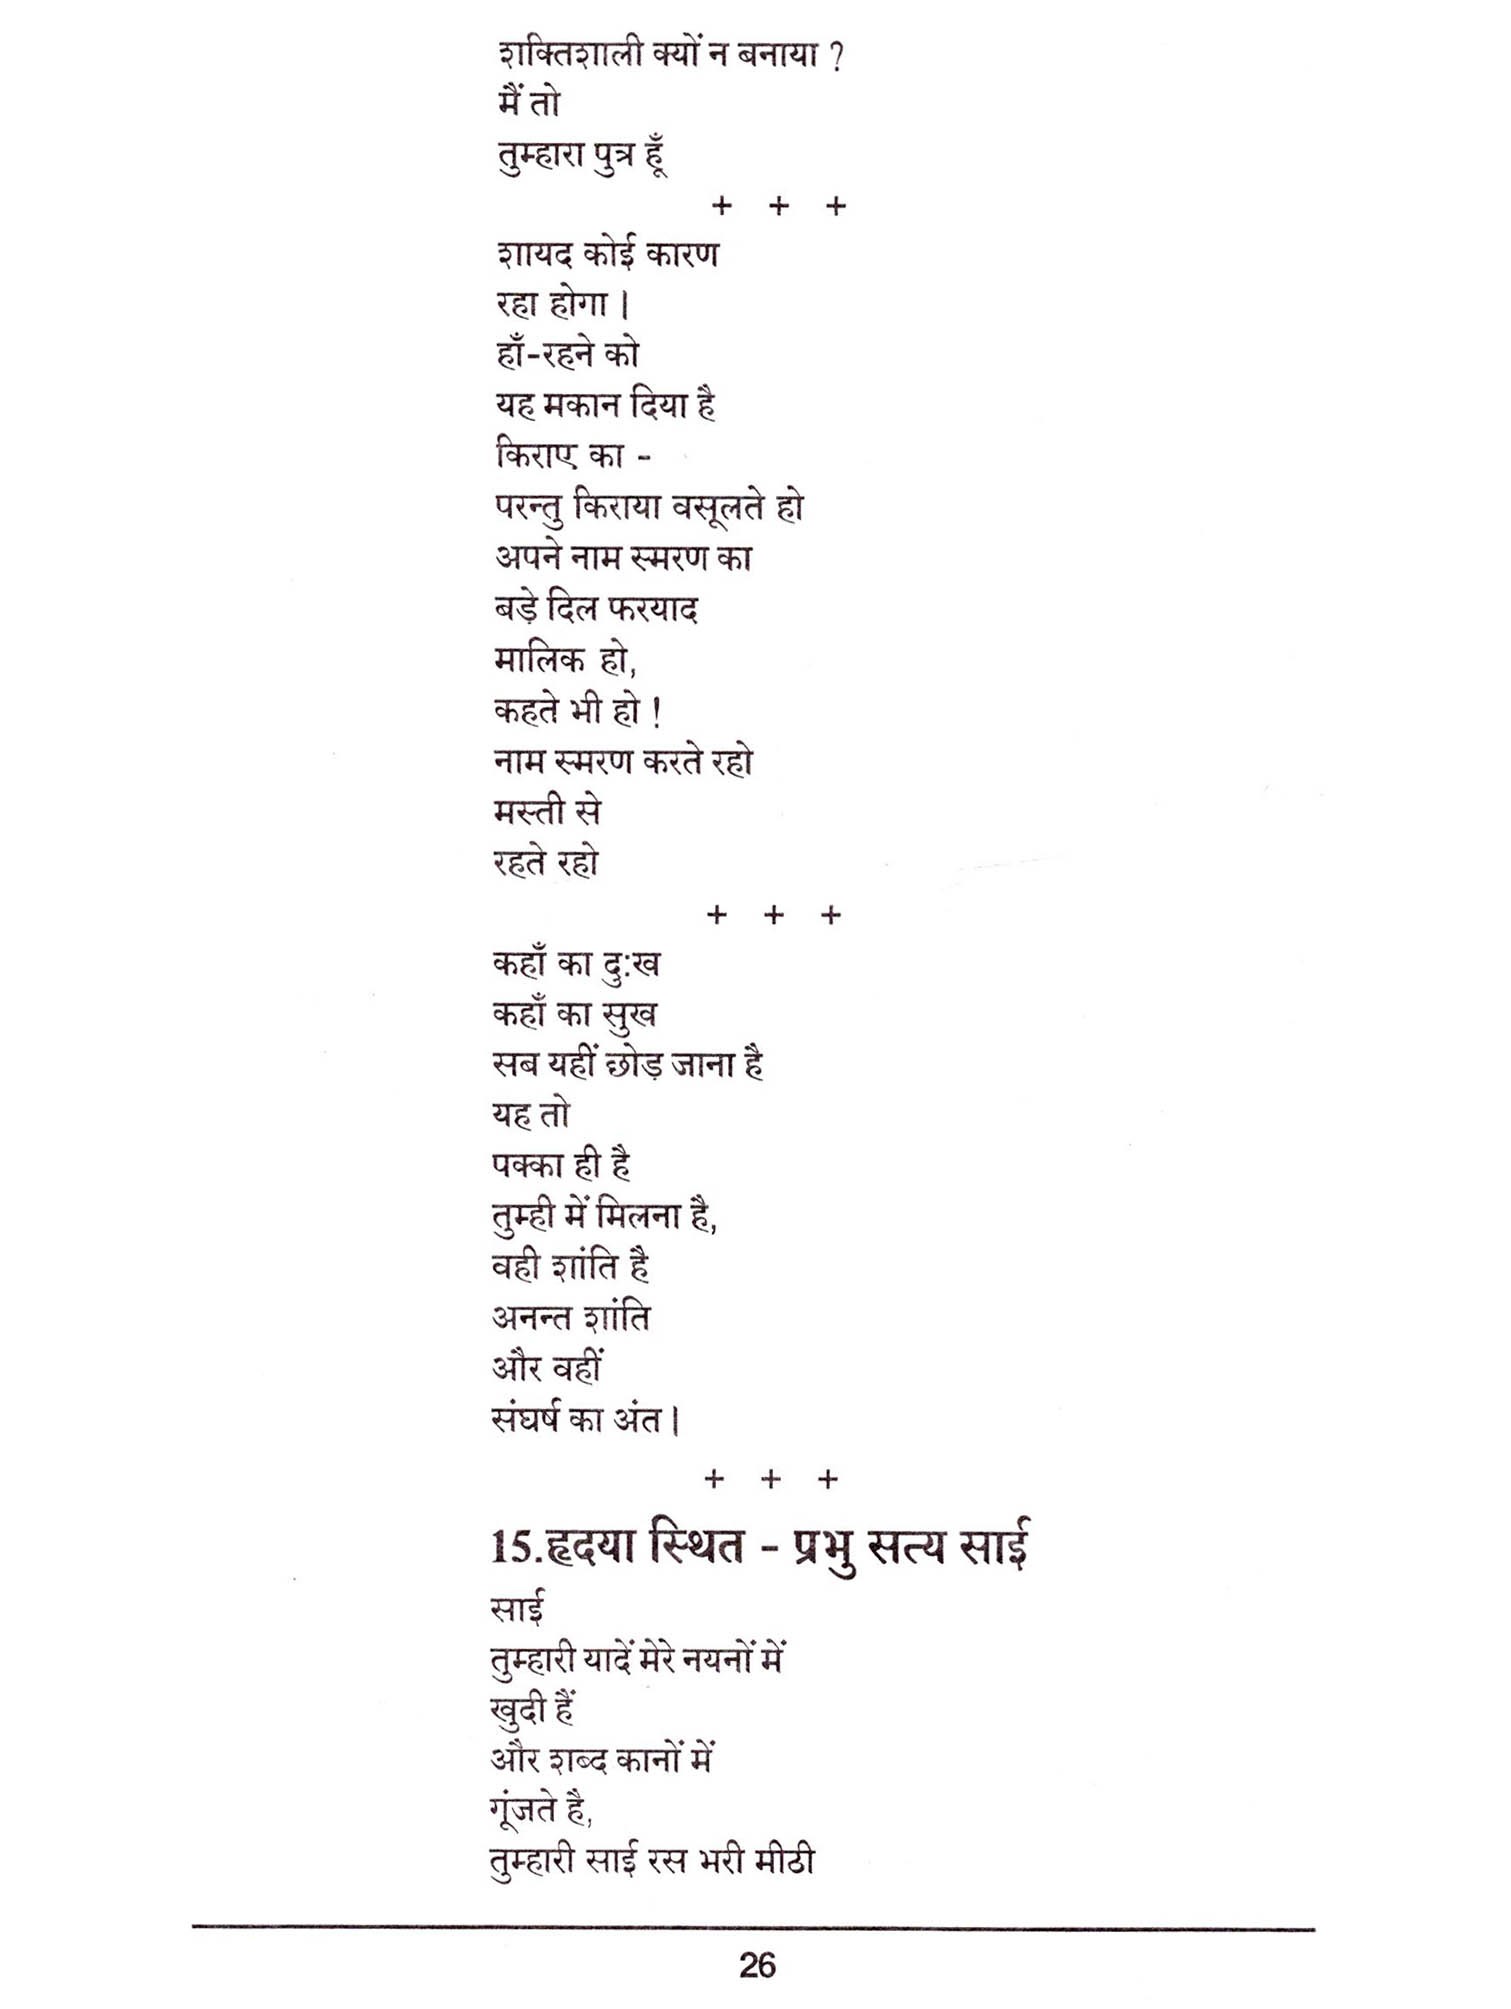 शक्तिशाली क्यों न बनाया ?
मैं तो
तुम्हारा पुत्र हूँ
+ + +
शायद कोई कारण
रहा होगा।
हाँ-रहने को
यह मकान दिया है
किराए का -
परन्तु किराया वसूलते हो
अपने नाम स्मरण का
बड़े दिल फरयाद
मालिक हो,
कहते भी हो !
नाम स्मरण करते रहो
मस्ती से
रहते रहो
+ + +
कहाँ का दुःख
कहाँ का सुख
सब यहीं छोड़ जाना है
यह तो
पक्का ही है
तुम्ही में मिलना है,
वही शांति है
अनन्त शांति
और वहीं
संघर्ष का अंत।
+ + +
15.हृदया स्थित - प्रभु सत्य साई
साई
तुम्हारी यादें मेरे नयनों में
खुदी हैं
और शब्द कानों में
गूंजते है,
तुम्हारी साई रस भरी मीठी
26